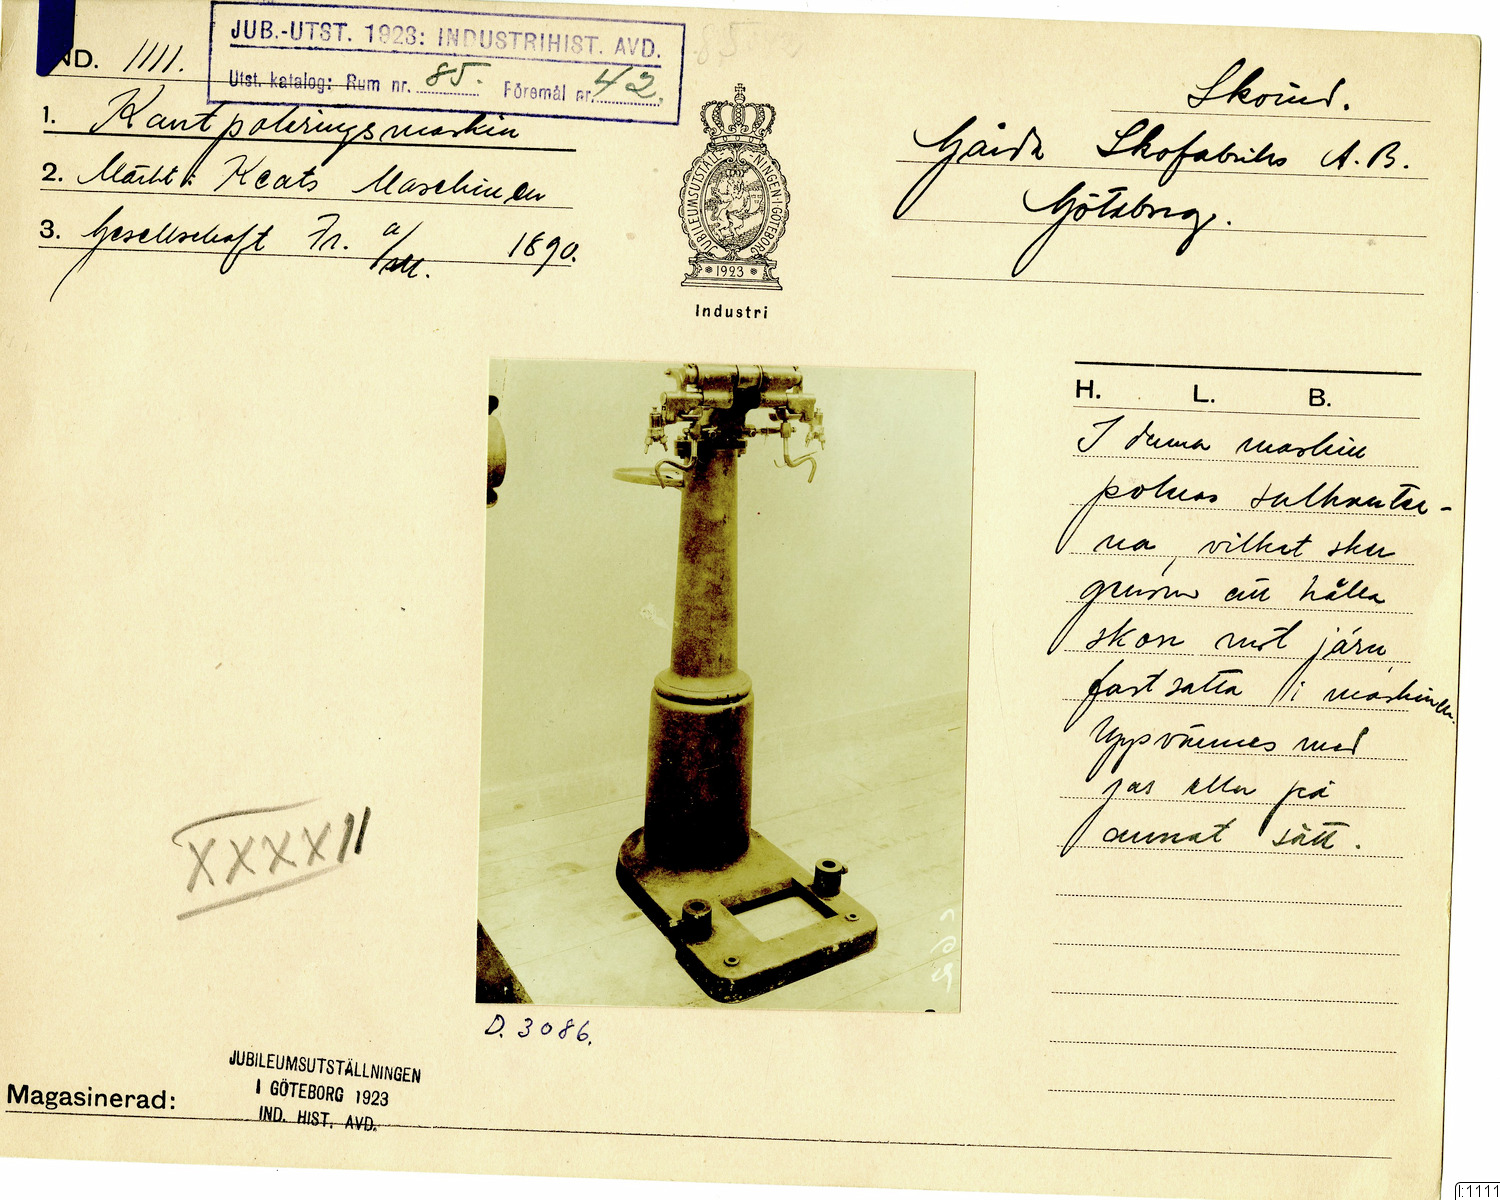 JUB.-UTST. 1923: INDUSTRIHIST. AVD.
Utst. katalog: Rum nr. 85. Föremål nr. 42.
IND. 1111.
1. Kantpoleringsmaskin
2. Märkt: Keats Maschinen
3. Gesellschaft Fr. a/M. 1890.
JUBILEUMSUTSTÄLLNINGEN I GÖTEBORG
1923
Industri
Skoind.
Gårda Skofabriks A.B.
Göteborg.
H. L. B.
I denna maskin
poleras sulkanter-
na, vilket sker
genom att hålla
skon mot järn,
fastsatta i maskinen.
Uppvärmes med
gas eller på
annat sätt.
XXXXII
D. 3086.
Magasinerad:
JUBILEUMSUTSTÄLLNINGEN
I GÖTEBORG 1923
IND. HIST. AVD.
i:1111